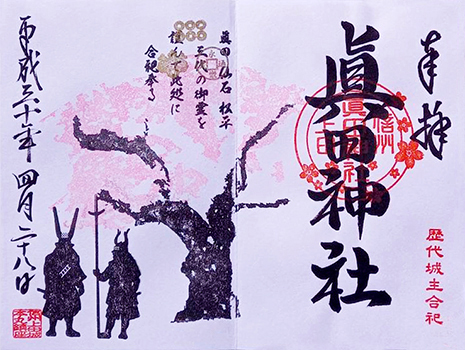 奉拝
歴代城主合祀
眞田神社
信州
眞田 仙石 松平
三代の御霊を
謹んで此処に
合祀奉る
平成三十年四月二十八日